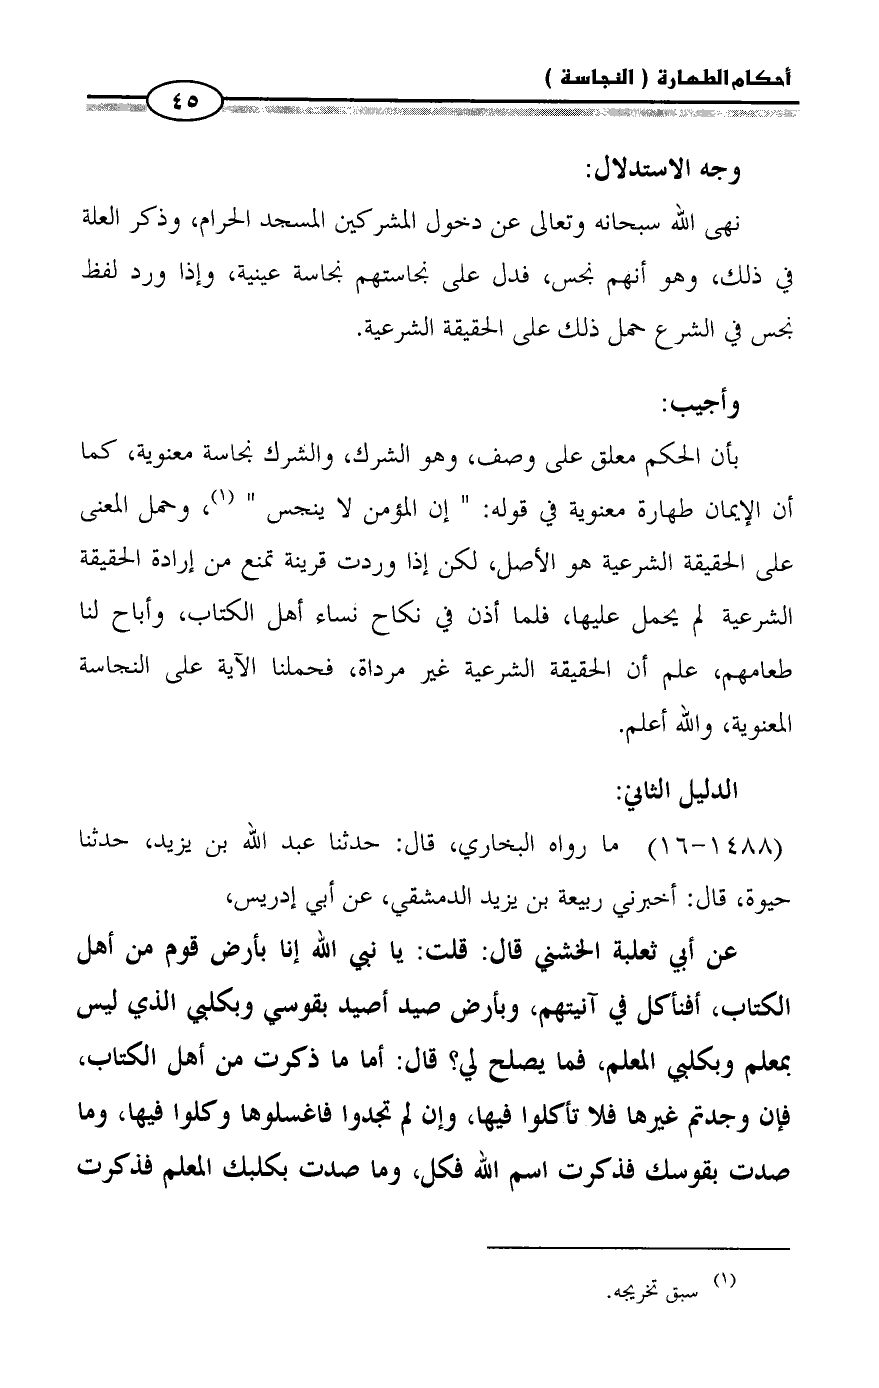 أحكام الطهارة ( النجاسة )
٤٥
وجه الاستدلال:
نهى الله سبحانه وتعالى عن دخول المشركين المسجد الحرام، وذكر العلة
في ذلك، وهو أنهم نجس، فدل على نجاستهم نجاسة عينية، وإذا ورد لفظ
نجس في الشرع حمل ذلك على الحقيقة الشرعية.
وأجيب:
بأن الحكم معلق على وصف، وهو الشرك، والشرك نجاسة معنوية، كما
أن الإيمان طهارة معنوية في قوله: " إن المؤمن لا ينجس " (١)، وحمل المعنى
على الحقيقة الشرعية هو الأصل، لكن إذا وردت قرينة تمنع من إرادة الحقيقة
الشرعية لم يحمل عليها، فلما أذن في نكاح نساء أهل الكتاب، وأباح لنا
طعامهم، علم أن الحقيقة الشرعية غير مرداة، فحملنا الآية على النجاسة
المعنوية، والله أعلم.
الدليل الثاني:
(١٤٨٨-١٦) ما رواه البخاري، قال: حدثنا عبد الله بن يزيد، حدثنا
حيوة، قال: أخبرني ربيعة بن يزيد الدمشقي، عن أبي إدريس،
عن أبي ثعلبة الخشني قال: قلت: يا نبي الله إنا بأرض قوم من أهل
الكتاب، أفنأكل في آنيتهم، وبأرض صيد أصيد بقوسي وبكلبي الذي ليس
بمعلم وبكلبي المعلم، فما يصلح لي؟ قال: أما ما ذكرت من أهل الكتاب،
فإن وجدتم غيرها فلا تأكلوا فيها، وإن لم تجدوا فاغسلوها وكلوا فيها، وما
صدت بقوسك فذكرت اسم الله فكل، وما صدت بكلبك المعلم فذكرت
(١) سبق تخريجه.